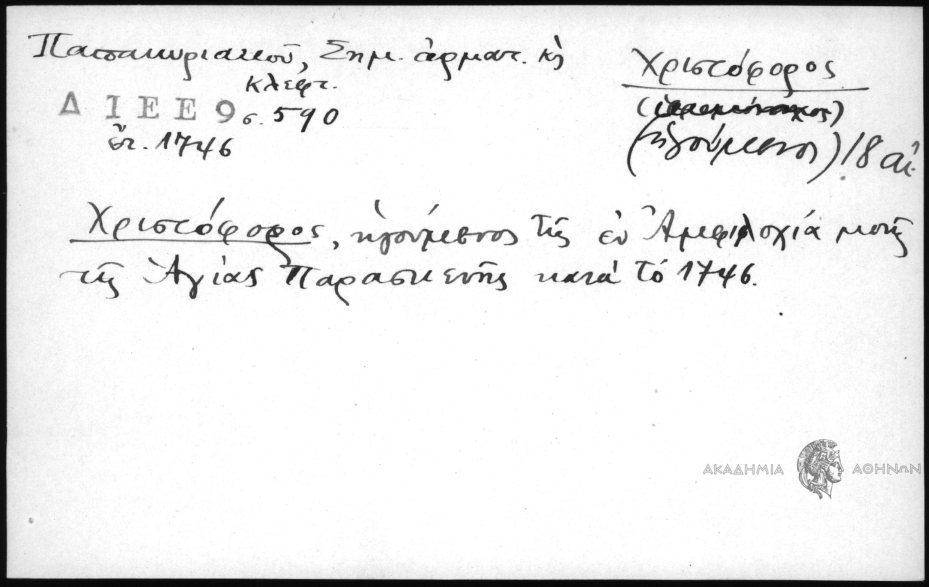 Παπακυριακοῦ, Σημ. ἁρματ. κὶ
κλέφτ.
Δ Ι Ε Ε 9 σ. 590
ἔτ. 1746
Χριστόφορος
(ἱερομόναχος)
(ἡγούμενος) 18 αἰ.
Χριστόφορος, ἡγούμενος τῆς ἐν Ἀμφιλοχίᾳ μονῆς
τῆς Ἁγίας Παρασκευῆς κατὰ τὸ 1746.
ΑΚΑΔΗΜΙΑ ΑΘΗΝΩΝ